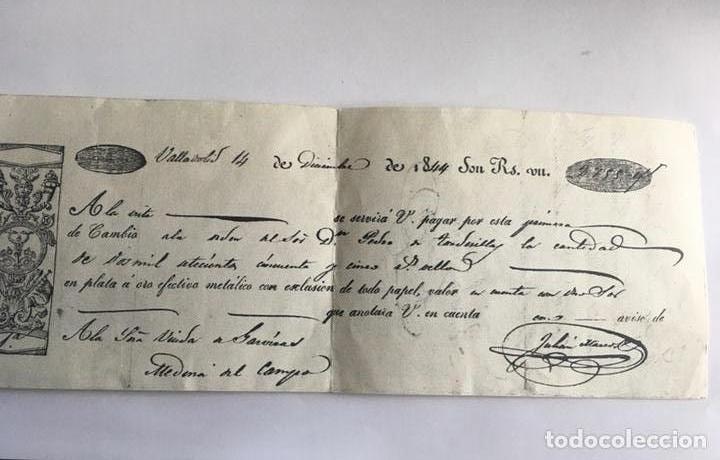 Valladolid 14 de Diciembre de 1844 Son Rs. vn.
A la vista se servirá V. pagar por esta primera
de Cambio a la orden del Sor Dn Pedro la cantidad
de dos mil setecientos cincuenta y cinco rs. vellon
en plata á oro efectivo metálico con esclusion de todo papel, valor en cuenta con dho Sor
que anotará V. en cuenta aviso de
A la Sra Viuda de
Medina del Campo
Julian
1a
todocoleccion
todocoleccion.net